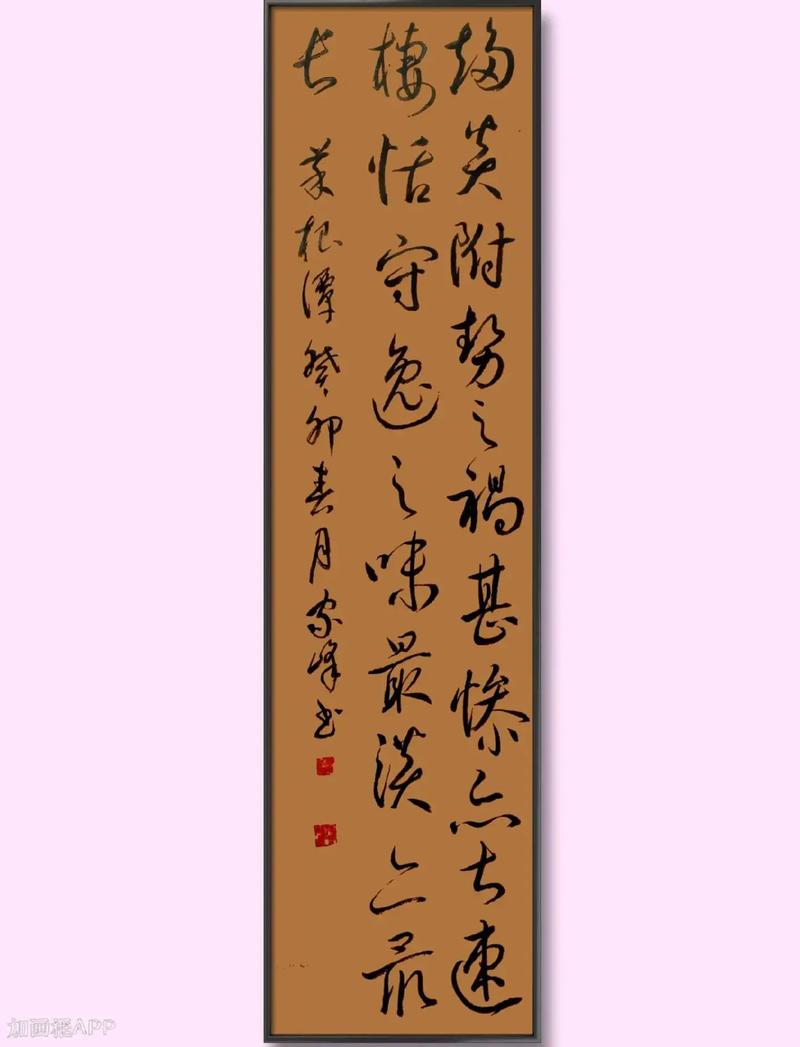 趨炎附勢之禍甚慘亦甚速
棲恬守逸之味最淡亦最
長 菜根潭 癸卯春月家峰书
加画框APP